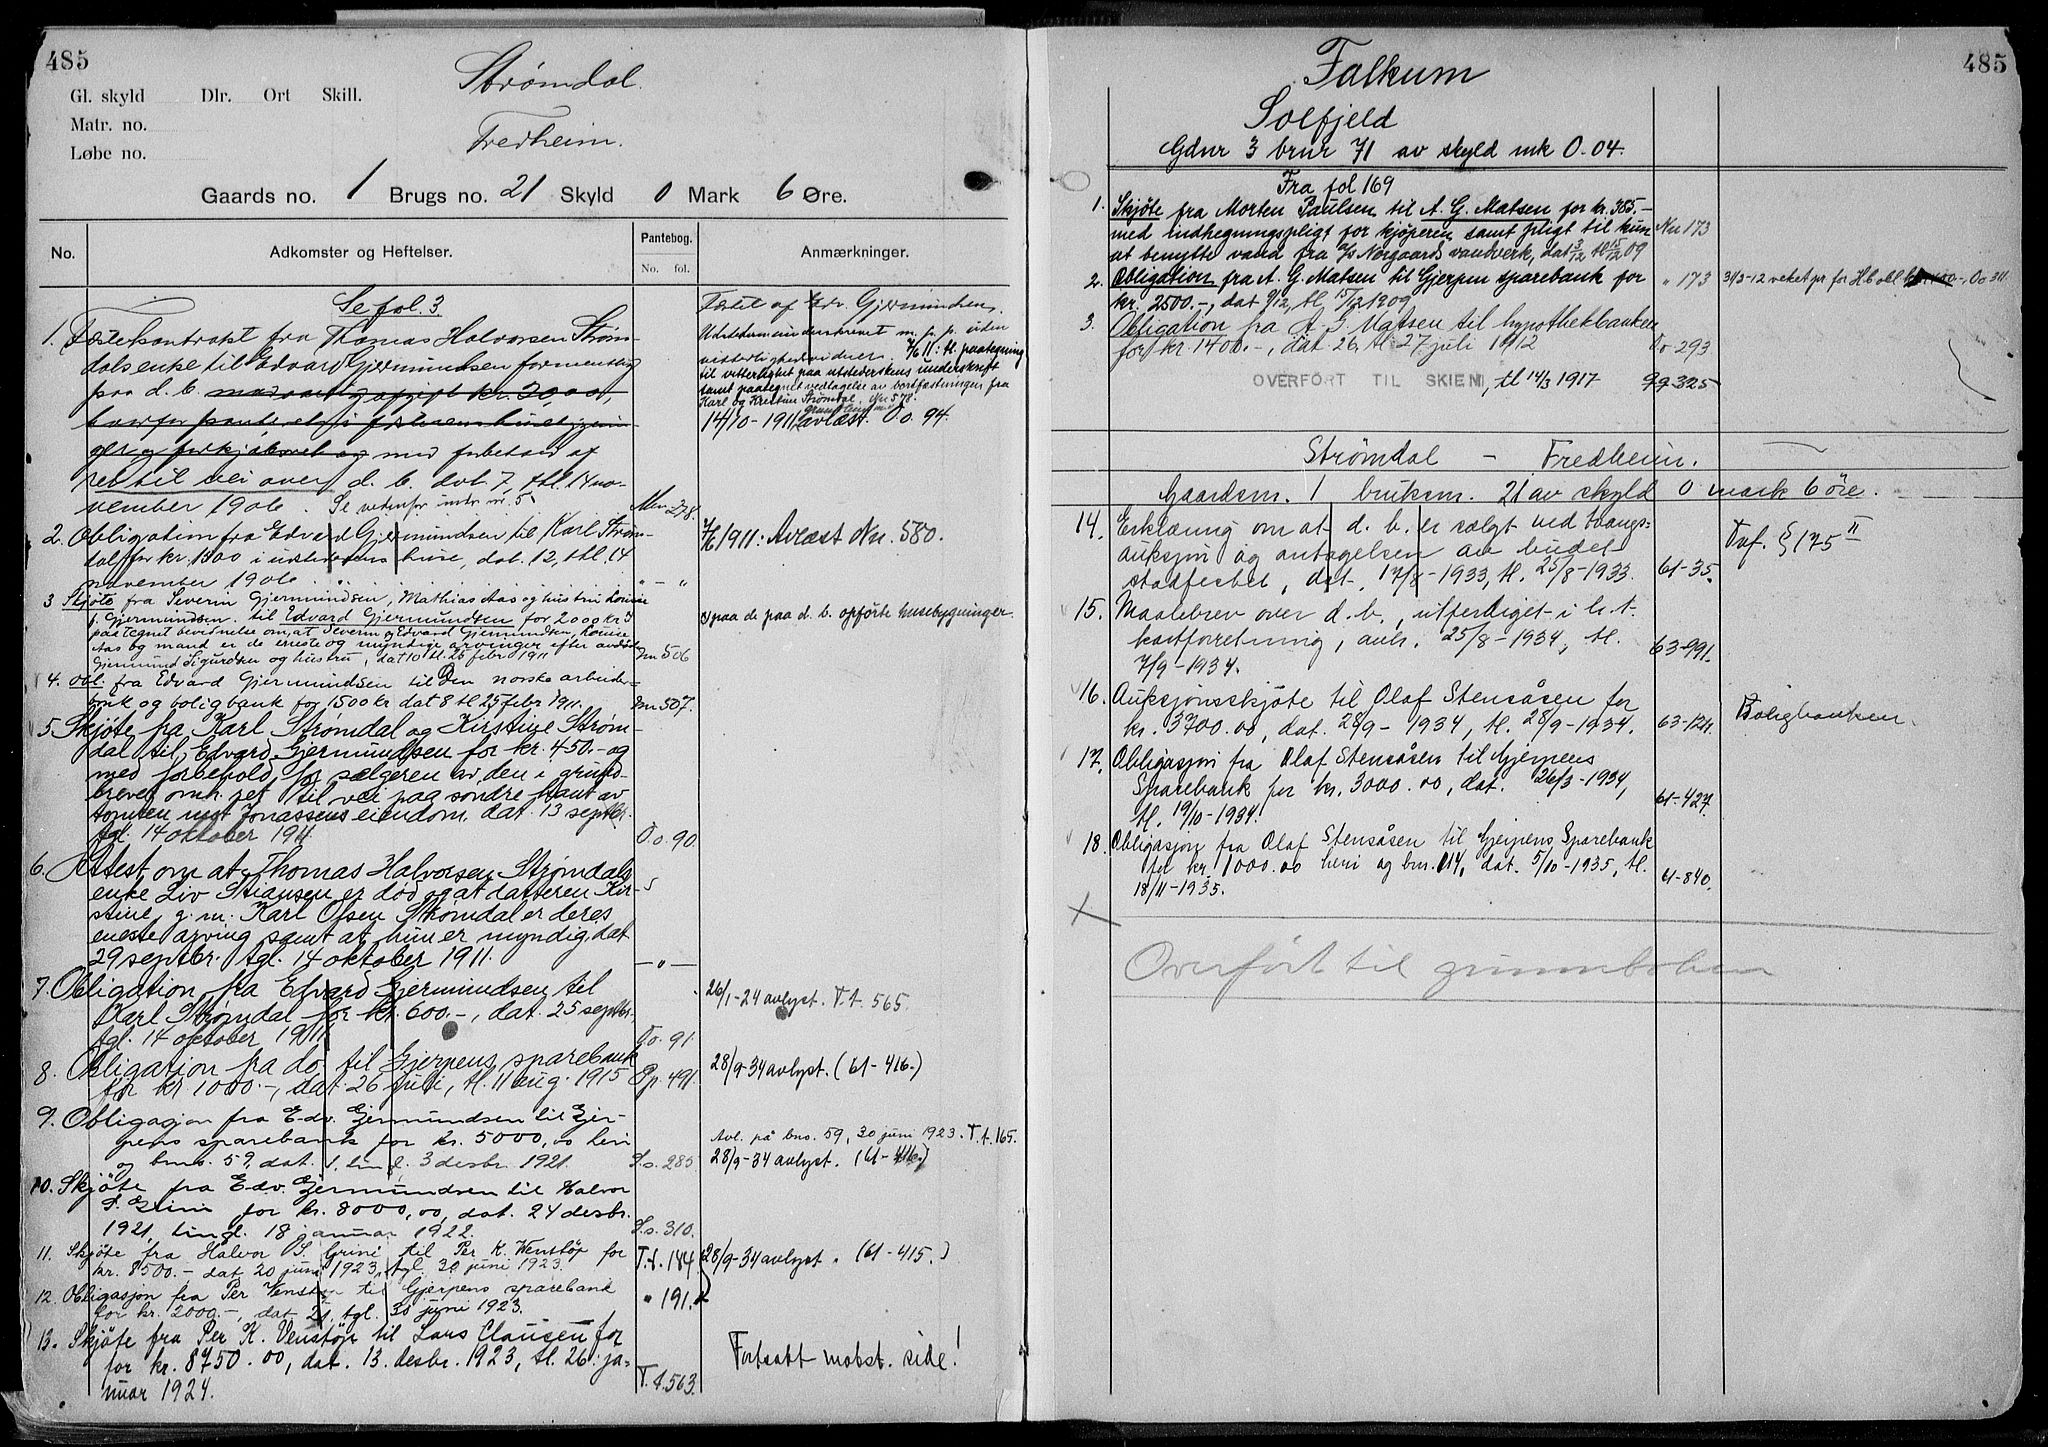 485
Gl. skyld Dlr. Ort Skill.
Matr. no.
Løbe no.
Strømdal.
Fredheim.
Gaards no. 1 Brugs no. 21 Skyld 0 Mark 6 Øre.
No. Adkomster og Heftelser. Pantebog. No. fol. Anmærkninger.
Se fol. 3
1. Festekontrakt fra Thomas Halvorsen Strøm-
dals enke til Edvard Gjermundsen
paa d. b. med aarlig afgift kr. 20,00,
hvorfor panteret i festerens husebygnin-
ger og forkjøbsret og med forbehold af
ret til vei over d. b. dat 7, thl. 14 no-
vember 1906. Se nedenfor under nr 5. Mm 278.
Festet af Edv. Gjermundsen
m. p. p. uden
vitterlighedsvidner. 7/6 11: tl. paategning
til vitterlighet paa utstederskens underskrift
samt paategnet vedtagelse av bortfæstningen fra
Karl og Kristine Strømdal. Nn 578.
14/10-1911 avlæst. Oo. 94.
2. Obligation fra Edvard Gjermundsen til Karl Strøm-
dal for kr. 1500 i husene, dat. 12, thl. 14
november 1906. " - "
7/6 1911: Avlæst Nn. 580.
3 Skjøte fra Severin Gjermundsen, Mathias Aas og hustru Lovise
f. Gjermundsen til Edvard Gjermundsen for 2000 kr
paategnet bevidnelse om, at Severin og Edvard Gjermundsen, Lovise
Aas og mand er de eneste og myndige arvinger efter avdøde
Gjermund Sigurdsen og hustru, dat 10 tl. 25 febr 1911 Nn 506
paa de paa d. b. opførte husebygninger.
4. Obl. fra Edvard Gjermundsen til Den norske arbeider-
bruk og boligbank for 1500 kr dat 8 tl 25 febr 1911. Nn 507.
5. Skjøte fra Karl Strømdal og Kirstine Strøm-
dal til Edvard Gjermundsen for kr. 450.- og
med forbehold for sælgeren av den i grund-
brevet omh. ret til vei paa søndre kant av
tomten mot Jonassens eiendom. dat. 13 septbr.
tgl. 14 oktober 1911. Oo. 90
6. Attest om at Thomas Halvorsen Strømdals
enke Liv Stiansen er død og at datteren Kir-
stine, g. m. Karl Olsen Strømdal er deres
eneste arving samt at hun er myndig, dat
29 septbr. tgl. 14 oktober 1911. - " -
7. Obligation fra Edvard Gjermundsen til
Karl Strømdal for kr. 600.-, dat. 25 septbr.
tgl. 14 oktober 1911. Oo. 91.
26/1-24 avlyst. T.t. 565.
8. Obligation fra do. til Gjerpens sparebank
for kr 1000.-, dat. 26 juli, tl. 11 aug. 1915 Pp. 491.
28/9-34 avlyst. (61-416.)
9. Obligasjon fra Edv. Gjermundsen til Gjer-
pens sparebank for kr. 5000,00 heri
og bnr. 59, dat. 1, tingl. 3 desbr. 1921. S.s. 285
Avl. på bnr. 59, 30 juni 1923. T.t. 165.
28/9-34 avlyst. (61-416.)
10. Skjøte fra Edv. Gjermundsen til Halvor
S. Grini for kr. 8000,00, dat. 24 desbr.
1921, tingl. 18 januar 1922. S.s. 310.
11. Skjøte fra Halvor S. Grini til Per K. Venstøp for
kr. 8500.- dat. 20 juni 1923, tgl. 30 juni 1923. T.t. 184
28/9-34 avlyst. (61-415.)
12. Obligasjon fra Per Venstøp til Gjerpens sparebank
for kr. 2000.-, dat. 21, tgl. 30 juni 1923. " 191.
13. Skjøte fra Per K. Venstøp til Lars Clausen for
for kr. 8750.00, dat. 13. desbr. 1923, tl. 26. ja-
nuar 1924. T.t. 563.
Fortsatt motst. side!
485
Falkum
Solfjeld
Gdnr 3 brnr 71 av skyld mk 0.04.
Fra fol 169
1. Skjøte fra Morten Paulsen til A. G. Matsen for kr. 385.-
med indhegningspligt for kjøperen samt pligt til kun
at benytte vand fra a/s Nørgaards vandverk, dat 3/12 tl 15/12 09 Nn 173
2. Obligation fra A. G. Matsen til Gjerpen sparebank for
kr. 2500.-, dat 9/12, tl. 15/12 1909. " 173
31/3-12 veket pr. for Hb obl Oo 311
3. Obligation fra A. G. Matsen til hypothekbanken
for kr 1400.-, dat 26, tl 27 juli 1912 Oo 293
OVERFØRT TIL SKIEN, tl 14/3 1917 Qq 325
Strømdal - Fredheim.
Gaardsnr. 1 bruksnr. 21 av skyld 0 mark 6 øre.
14. Erklæring om at d. b. er solgt ved tvangs-
auksjon og antagelsen av budet
stadfestet, dat. 17/8-1933, tl. 25/8-1933. 61-35.
Tvf. § 175 II
15. Maalebrev over d. b., utferdiget i h. t.
kartforretning, avh. 25/8-1934, tl.
7/9-1934. 63-991.
16. Auksjonsskjøte til Olaf Stensåsen for
kr. 3700.00, dat. 28/9-1934, tl. 28/9-1934. 63-124.
Boligbanken.
17. Obligasjon fra Olaf Stensåsen til Gjerpens
Sparebank for kr. 3000.00, dat. 26/3-1934,
tl. 19/10-1934. 61-427.
18. Obligasjon fra Olaf Stensåsen til Gjerpens Sparebank
for kr. 1000.00 heri og bnr. 114, dat. 5/10-1935, tl.
18/11-1935. 61-840.
Overført til grunnboken